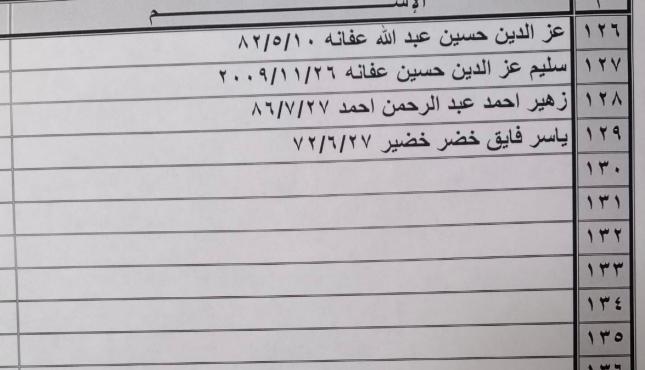 الإســـــــــم
١٢٦ عز الدين حسين عبد الله عفانه ٨٢/٥/١٠
١٢٧ سليم عز الدين حسين عفانه ٢٠٠٩/١١/٢٦
١٢٨ زهير احمد عبد الرحمن احمد ٨٦/٧/٢٧
١٢٩ ياسر فايق خضر خضير ٧٢/٦/٢٧
١٣٠
١٣١
١٣٢
١٣٣
١٣٤
١٣٥
١٣٦